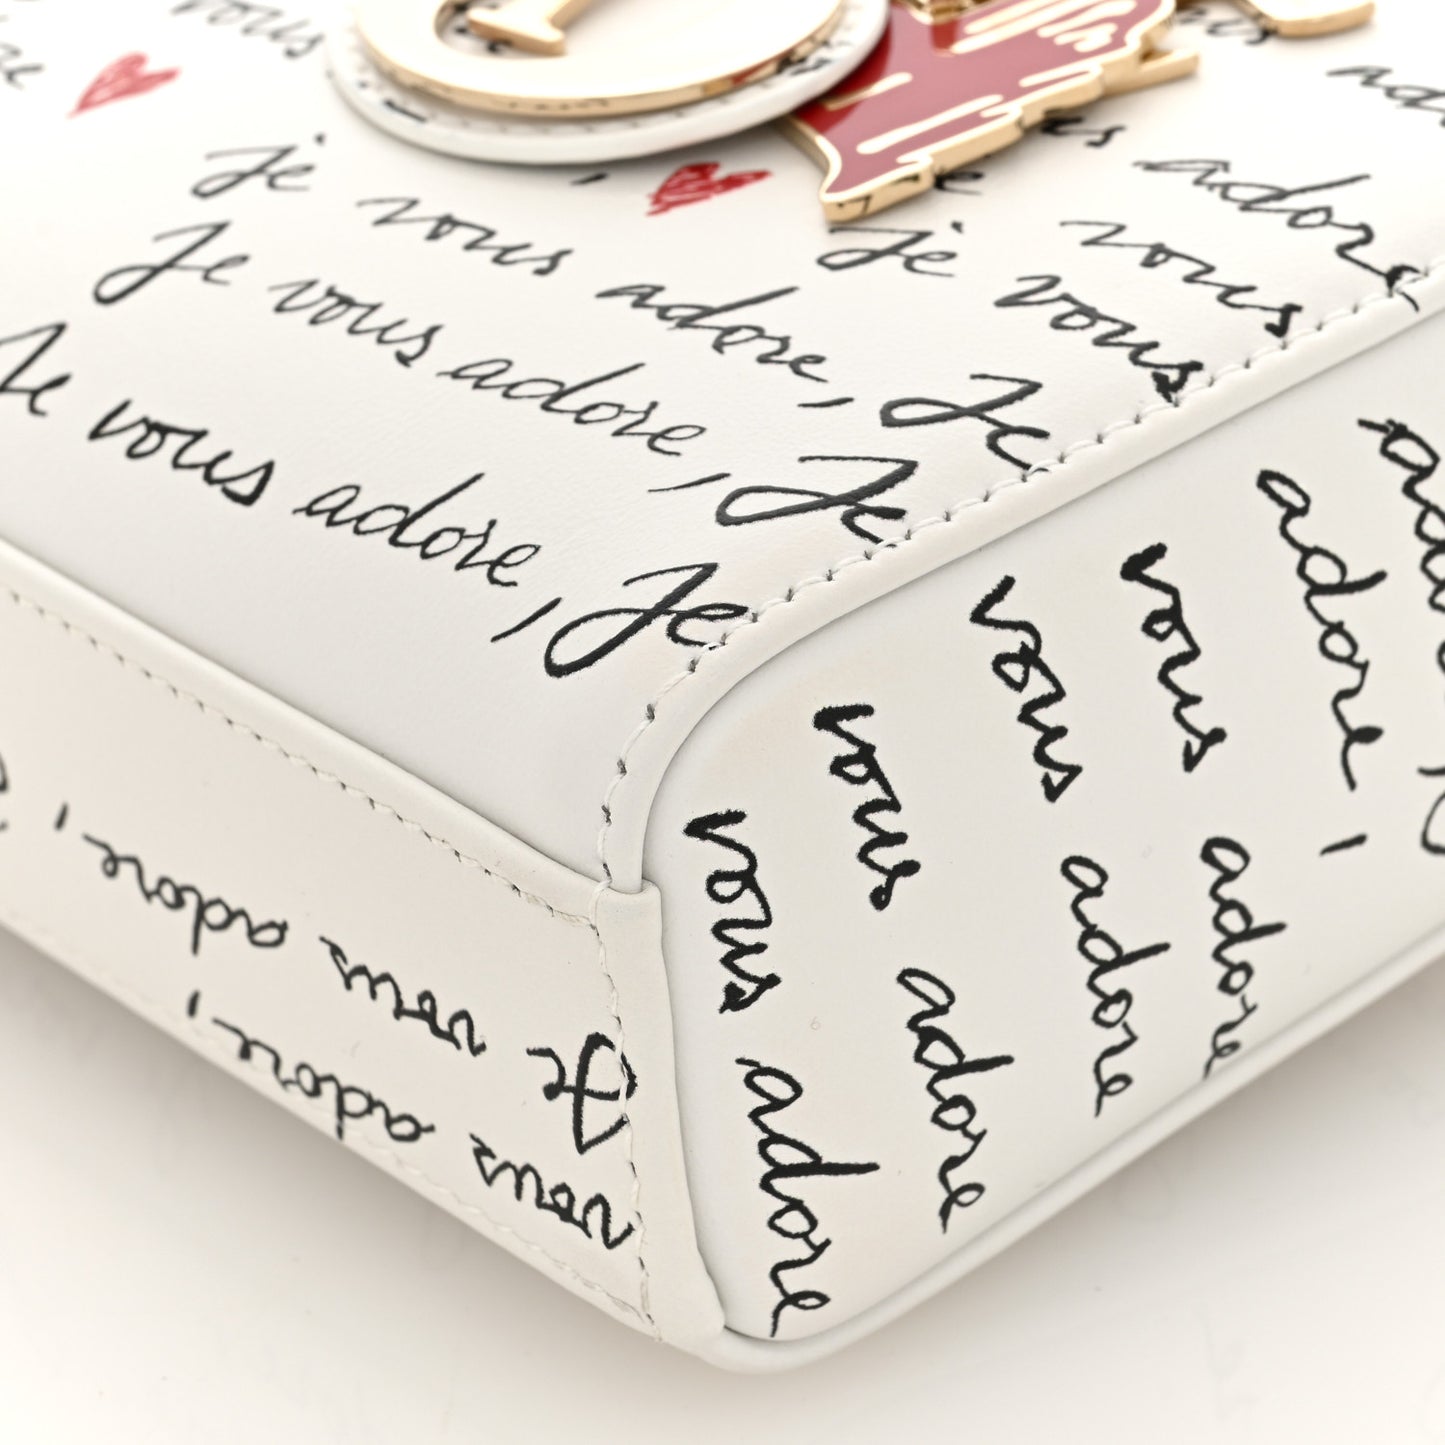 vous
je vous adore, Je
Je vous adore, Je
Je vous adore, Je
adore
vous
je vous
vous adore
vous adore
vous adore
vous adore
adore,
Je vous adore,
vous adore,